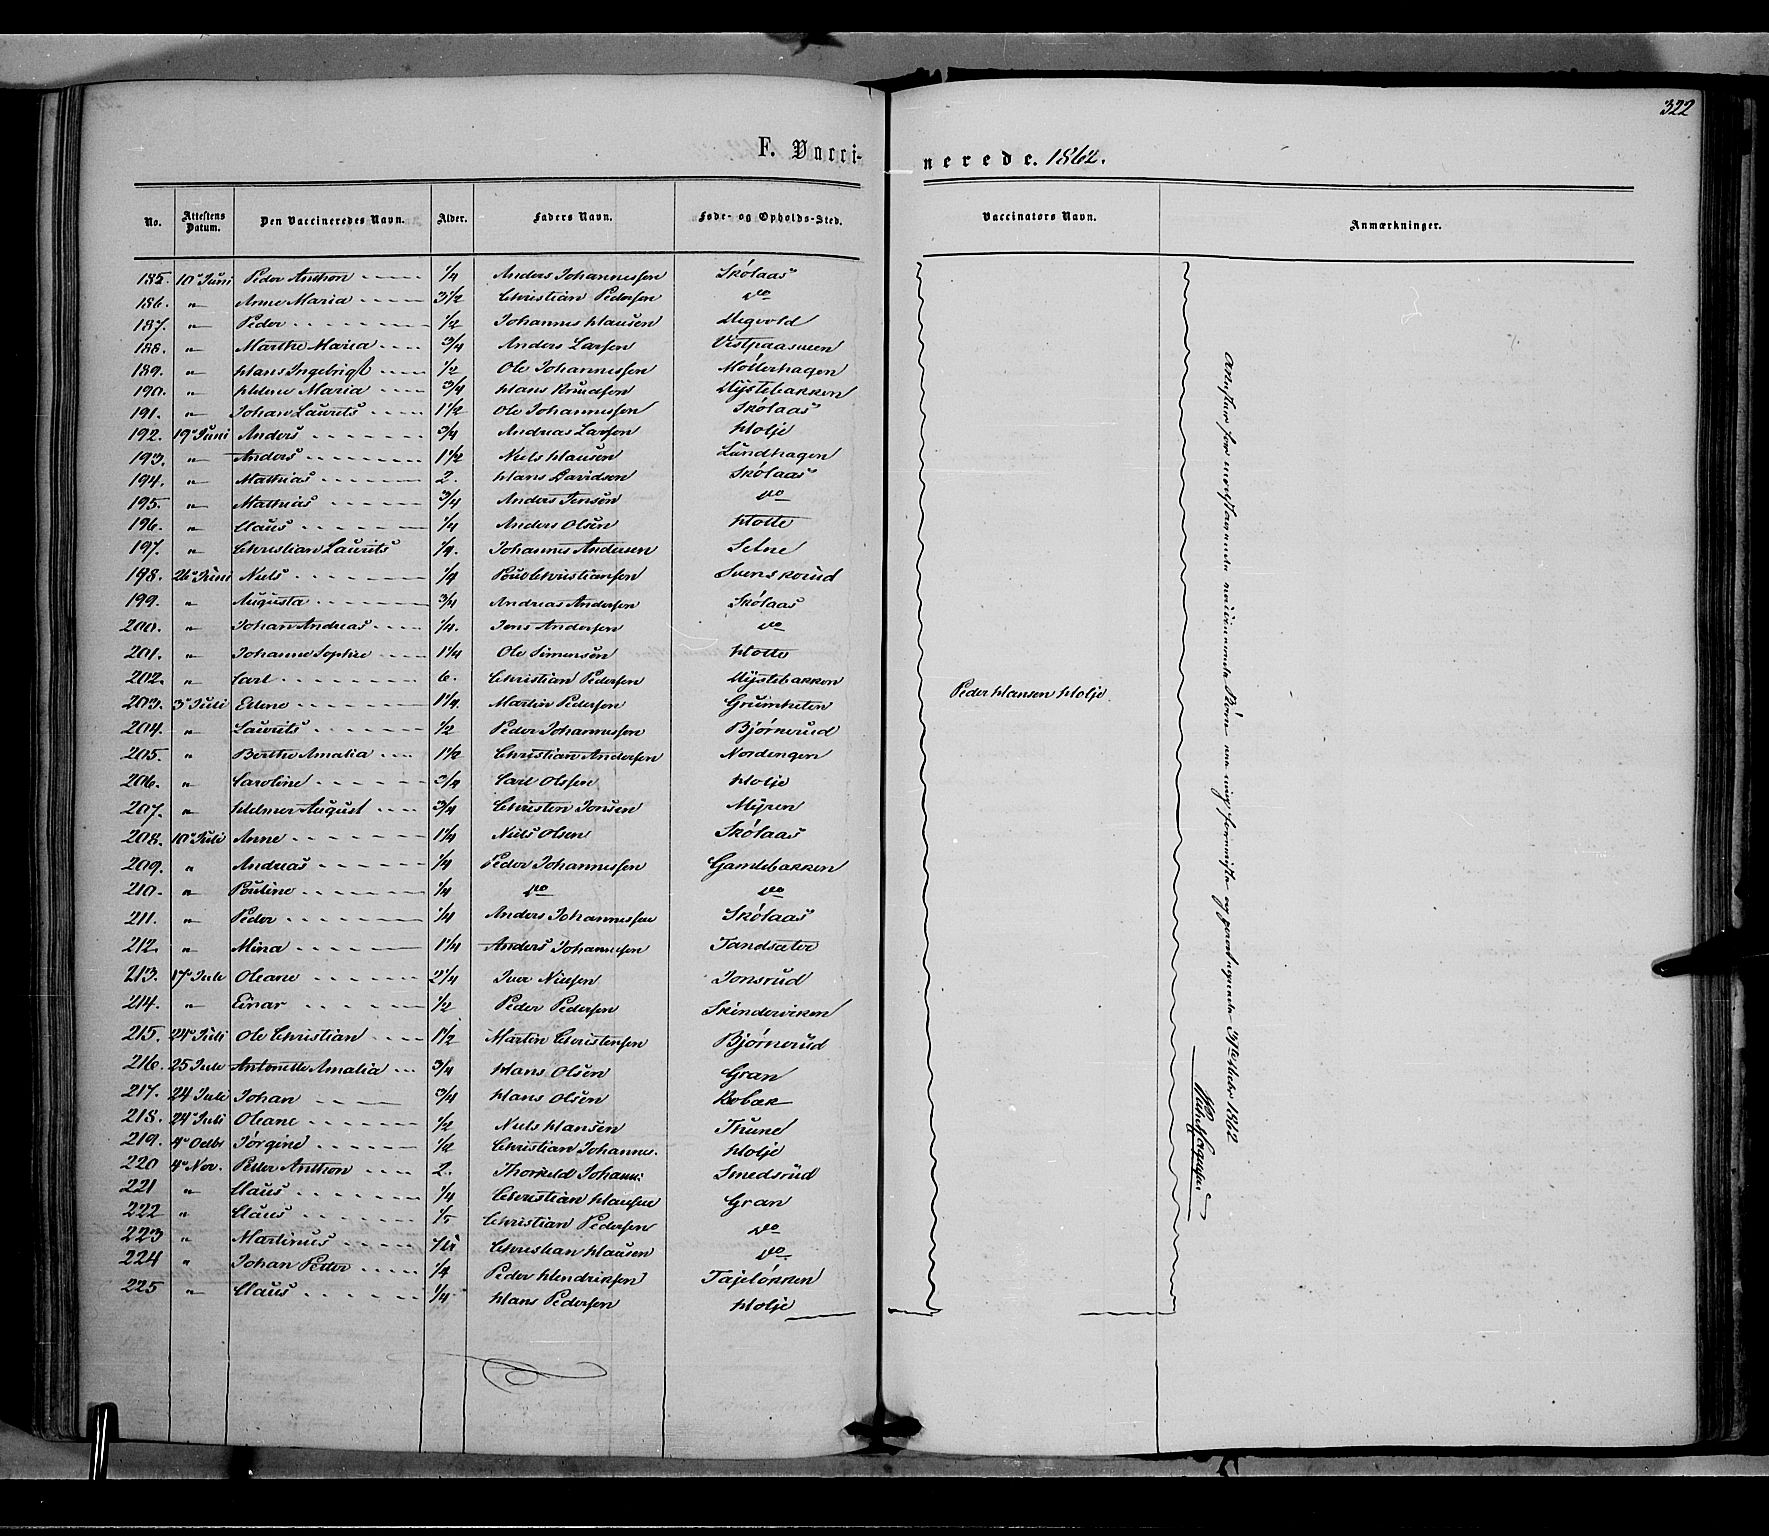 322
F. Vacci-
nerede. 1862.
No. Attestens Datum. Den Vaccineredes Navn. Alder. Faders Navn. Føde- og Opholds-Sted. Vaccinators Navn. Anmærkninger.
185. 10de Juni Peder Anthon 1/4 Anders Johannessen Skölaas
186. " Anne Maria 3 1/2 Christian Pedersen do
187. " Peder 1/2 Johannes Hansen Megvold
188. " Marthe Maria 3/4 Anders Larsen
189. " Hans Ingebrigt 1/2 Ole Johannessen Möllerhagen
190. " Helene Maria 3/4 Hans Knudsen Mystebakken
191. " Johan Laurits 1 1/2 Ole Johannessen Skölaas
192. 19de Juni Anders 3/4 Andreas Larsen Holje
193. " Anders 1 1/2 Niels Hansen Lundhagen
194. " Mathias 2. Hans Davidsen Skölaas
195. " Mathias 3/4 Anders Jensen do
196. " Claus 1/4 Anders Olsen Hotte
197. " Christian Laurits 1/4. Johannes Andersen Setne
198. 26de Juni Niels 1/4 Poul Christiansen Svenskerud
199. " Augusta 3/4 Andreas Andersen Skölaas
200. " Johan Andreas 1/4. Jens Andersen do
201. " Johanne Sophie 1 1/4 Ole Simensen Hotte
202. " Carl 6. Christian Pedersen Mystebakken
203. 3de Juli Edene 1 1/4. Martin Pedersen Peder Hansen Holje.
204. " Laurits 1/2 Peder Johannessen Bjørnerud
205. " Berthe Amalia 1 1/2 Christian Andersen Nordengen
206. " Caroline 3/4 Carl Olsen Holje
207. " Helmer August 3/4 Christen Jonsen Myren
208. 10de Juli Anne 1 1/4 Niels Olsen Skölaas
209. " Andreas 1/4 Peder Johannessen Gamlebakken
210. " Pouline 1/4 do do
211. " Peder 1/4 Anders Johannessen Skölaas
212. " Mina 1 1/4 Anders Johannesen Tandsæter
213. 17de Juli Oleane 2 1/4 Iver Nielsen Jonsrud
214. " Einar 1/2 Peder Pedersen Skinderviken
215. 24de Juli Ole Christian 1 1/2 Martin Christensen Bjørnerud
216. 25 Juli Antonette Amalia 3/4 Hans Olsen Gran
217. 24 Juli Johan 3/4 Hans Olsen
218. 24de Juli Oleane 1/2 Niels Hansen Thune
219. 4de Octbr Jörgine 1/2 Christian Johannes. Holje
220 4de Nov. Petter Anthon 2. Thorkeld Johans: Smedsrud
221 " Claus 1/4 Christian Hansen Gran
222 " Claus 1/5 Christian Pedersen do
223 " Martinus Christian Hansen do
224 " Johan Petter 1/4 Peder Hendriksen Tajeløkken
225 " Claus 1/4 Hans Pedersen Holje
Attester for ovenstaaende vaccinerede Börn 1862